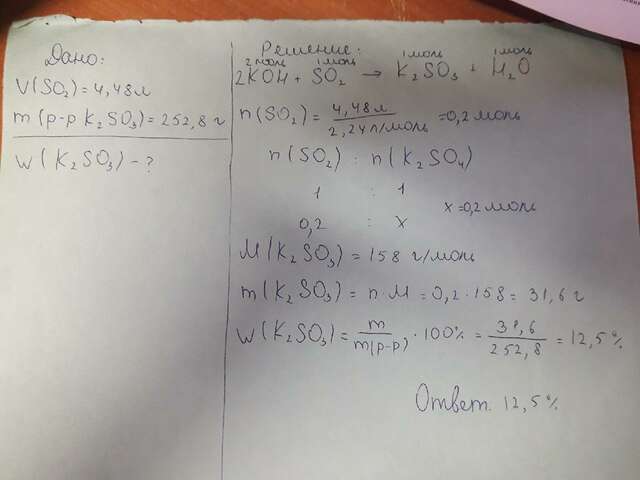 Дано:
V(SO₂) = 4,48 л
m(р-р K₂SO₃) = 252,8 г
w(K₂SO₃) - ?
Решение:
2 моль 1 моль 1 моль 1 моль
2KOH + SO₂ → K₂SO₃ + H₂O
n(SO₂) = 4,48 л / 2,24 л/моль = 0,2 моль
n(SO₂) : n(K₂SO₄)
1 : 1
0,2 : x x = 0,2 моль
M(K₂SO₃) = 158 г/моль
m(K₂SO₃) = n · M = 0,2 · 158 = 31,6 г
w(K₂SO₃) = m / m(р-р) · 100% = 31,6 / 252,8 = 12,5 %
Ответ. 12,5 %